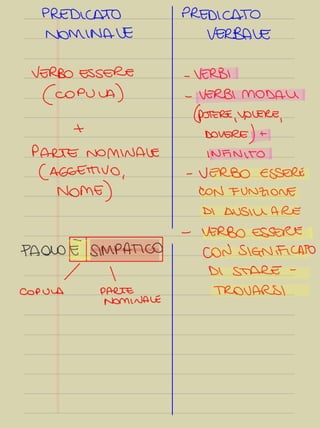 PREDICATO
NOMINALE
VERBO ESSERE
(COPULA)
+
PARTE NOMINALE
(AGGETTIVO,
NOME)
PAOLO È SIMPATICO
COPULA
PARTE
NOMINALE
PREDICATO
VERBALE
- VERBI
- VERBI MODALI
(POTERE, VOLERE,
DOVERE) +
INFINITO
- VERBO ESSERE
CON FUNZIONE
DI AUSILIARE
- VERBO ESSERE
CON SIGNIFICATO
DI STARE -
TROVARSI